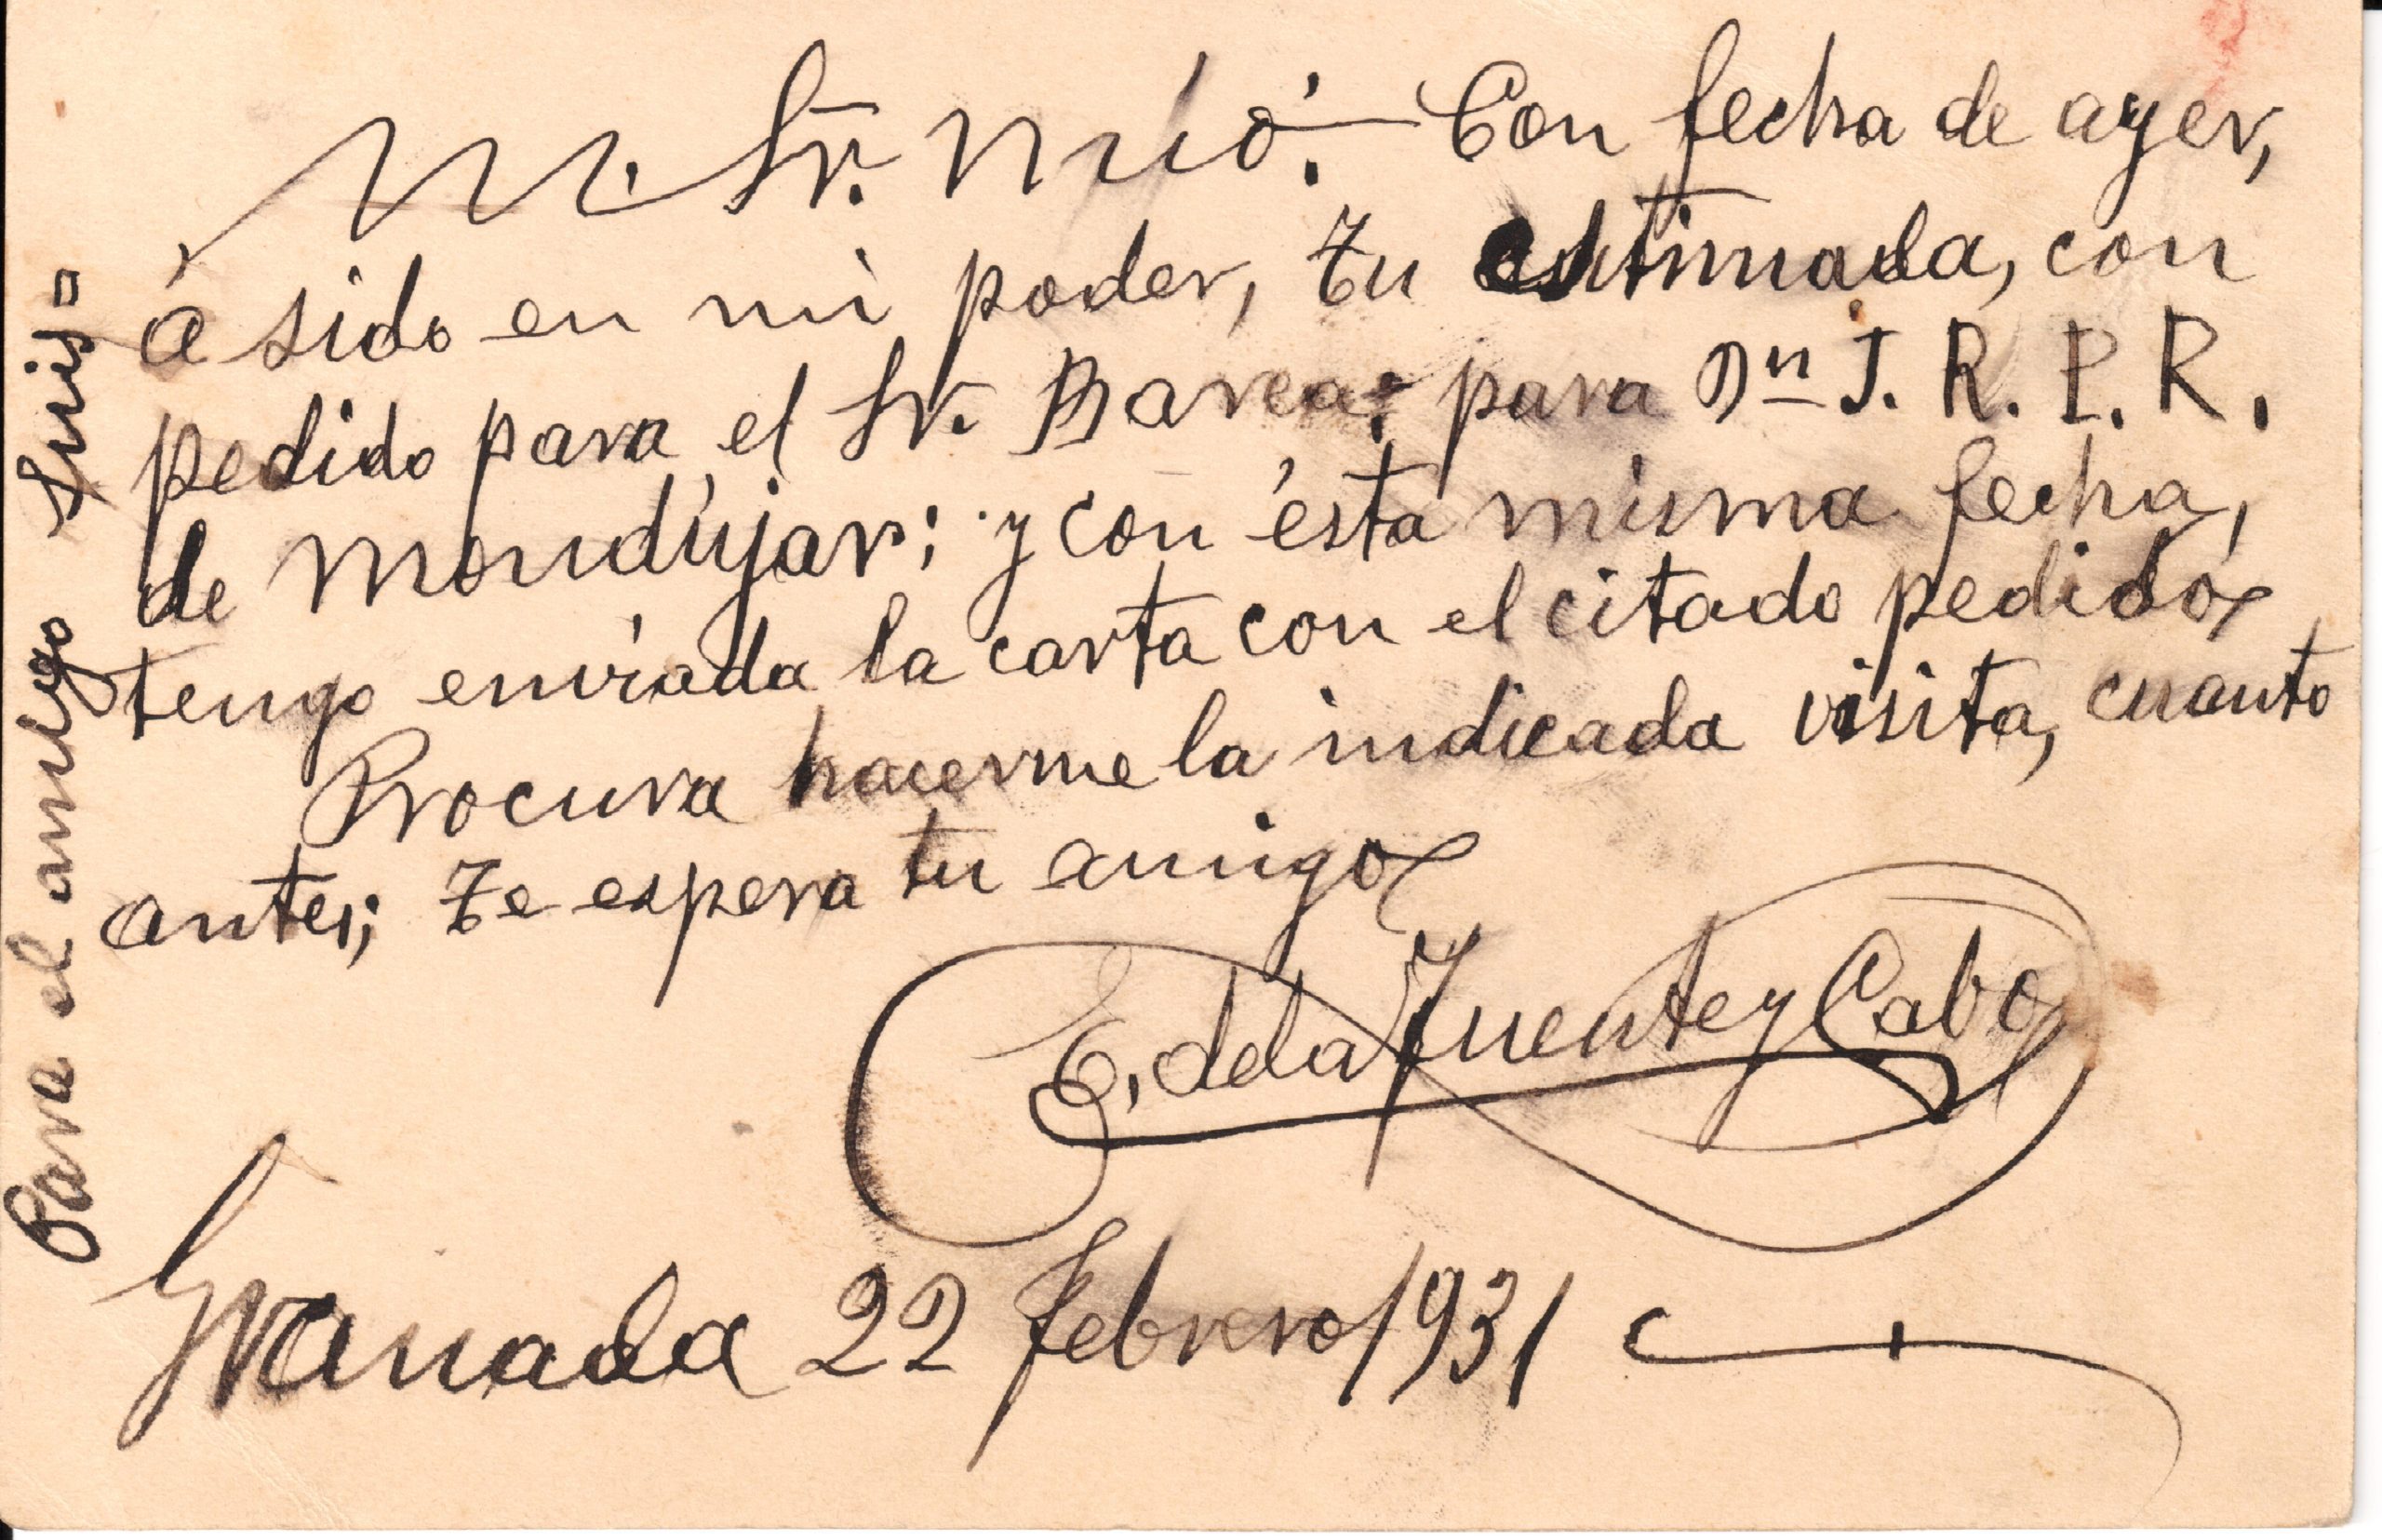 M. Sr. mío: Con fecha de ayer,
á sido en mi poder, tu estimada, con
pedido para el Sr. Barea: para Dn J. R. P. R.
de mondújar; y con ésta misma fecha,
tengo enviada la carta con el citado pedido
Procura hacerme la indicada visita, cuanto
antes; te espera tu amigo
E. de la Fuente y Cabo
Granada 22 febrero 1931
Para el amigo Luis =